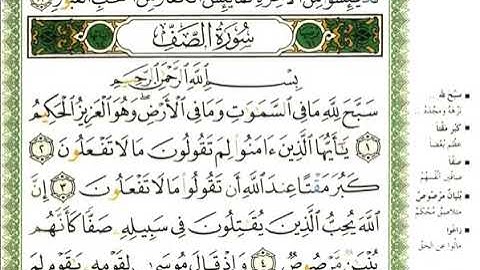 سُورَةُ الصَّفِّ
بِسْمِ اللَّهِ الرَّحْمَٰنِ الرَّحِيمِ
سَبَّحَ لِلَّهِ مَا فِي السَّمَٰوَٰتِ وَمَا فِي الْأَرْضِ ۖ وَهُوَ الْعَزِيزُ الْحَكِيمُ
۝١ يَٰٓأَيُّهَا الَّذِينَ ءَامَنُوا لِمَ تَقُولُونَ مَا لَا تَفْعَلُونَ ۝٢
كَبُرَ مَقْتًا عِندَ اللَّهِ أَن تَقُولُوا مَا لَا تَفْعَلُونَ ۝٣ إِنَّ
اللَّهَ يُحِبُّ الَّذِينَ يُقَٰتِلُونَ فِي سَبِيلِهِ صَفًّا كَأَنَّهُم
بُنْيَٰنٌ مَّرْصُوصٌ ۝٤ وَإِذْ قَالَ مُوسَىٰ لِقَوْمِهِ يَٰقَوْمِ لِمَ
سَبَّحَ لِلَّه
كَبُرَ مَقْتًا
صَفًّا
بُنْيَانٌ مَرْصُوصٌ
زَاغُوا